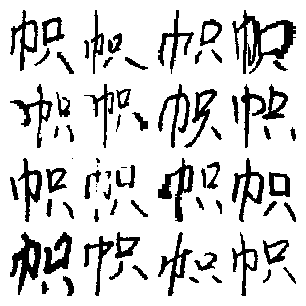 帜帜帜帜
帜帜帜帜
帜帜帜帜
帜帜帜帜